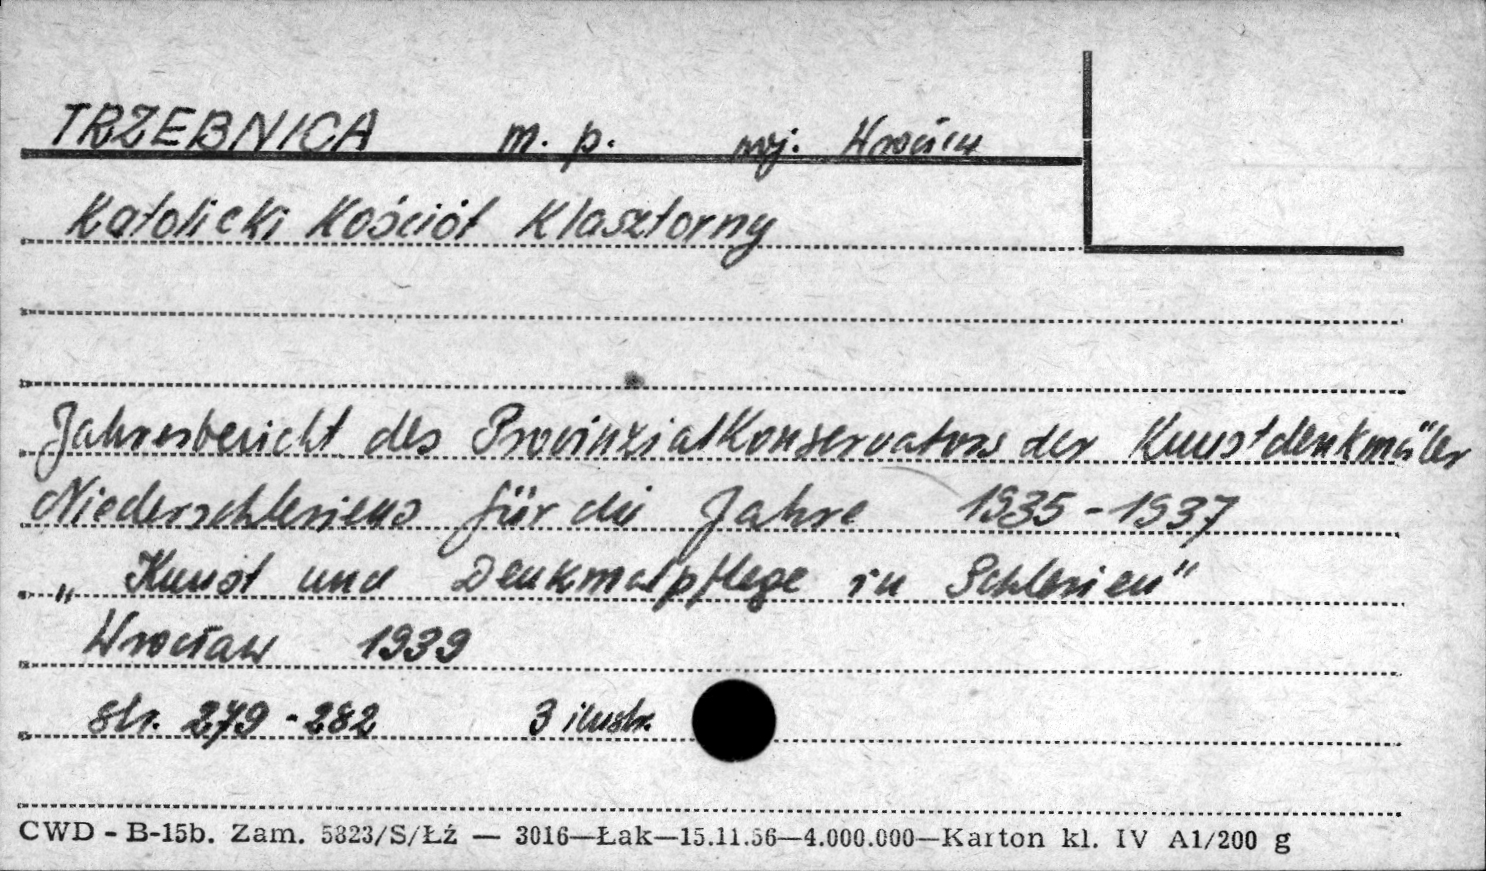 TRZEBNICA m. p. woj. Wrocław
Katolicki Kościół Klasztorny
Jahresbericht des Provinzialkonservators der Kunstdenkmäler
Niederschlesiens für die Jahre 1935-1937
„Kunst und Denkmalpflege in Schlesien"
Wrocław 1939
str. 279-282 3 ilustr.
CWD - B-15b. Zam. 5823/S/Łź — 3016—Łak—15.11.56—4.000.000—Karton kl. IV A1/200 g